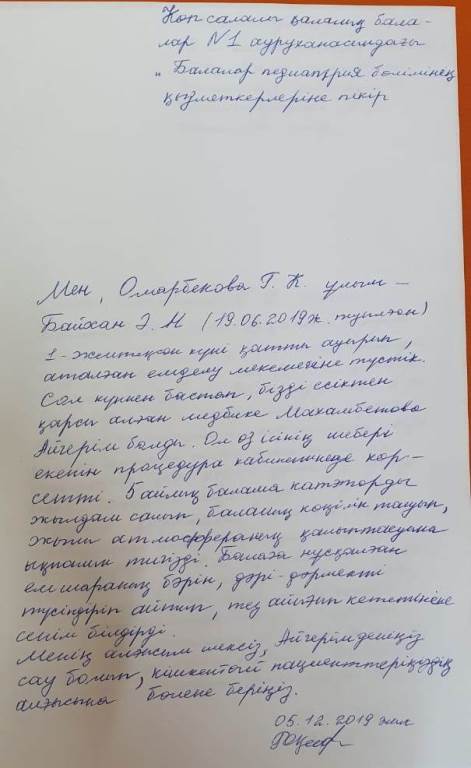 Көп салалы қалалық бала-
лар №1 ауруханасындағы
„Балалар педиатрия бөлімінең
қызметкерлеріне пікір
Мен, Омарбекова Г. К. ұлым –
Байхан Ә. М (19.06.2019ж. туылған)
1-желтоқсан күні қатты ауырып,
аталған емделу мекемесіне түстік.
Сол күннен бастап, бізді есіктен
қарсы алған медбике Махамбетова
Айгерім болды. Ол өз ісінің шебері
екенін процедура кабинетінде көр-
сетті. 5 айлық балама катэторды
жылдам салып, баланың көңілін тауып,
жылы атмосфераның қалыптасуына
ықпалын тигізді. Балаға нұсқалған
ем шараның бәрін, дәрі-дәрмекті
түсіндіріп айтып, тез айығып кететініне
сенім білдірді.
Менің алғысым шексіз, Айгерім деніңіз
сау болып, кішкентай пациенттеріңіздің
алғысына бөлене беріңіз.
05.12.2019 жыл